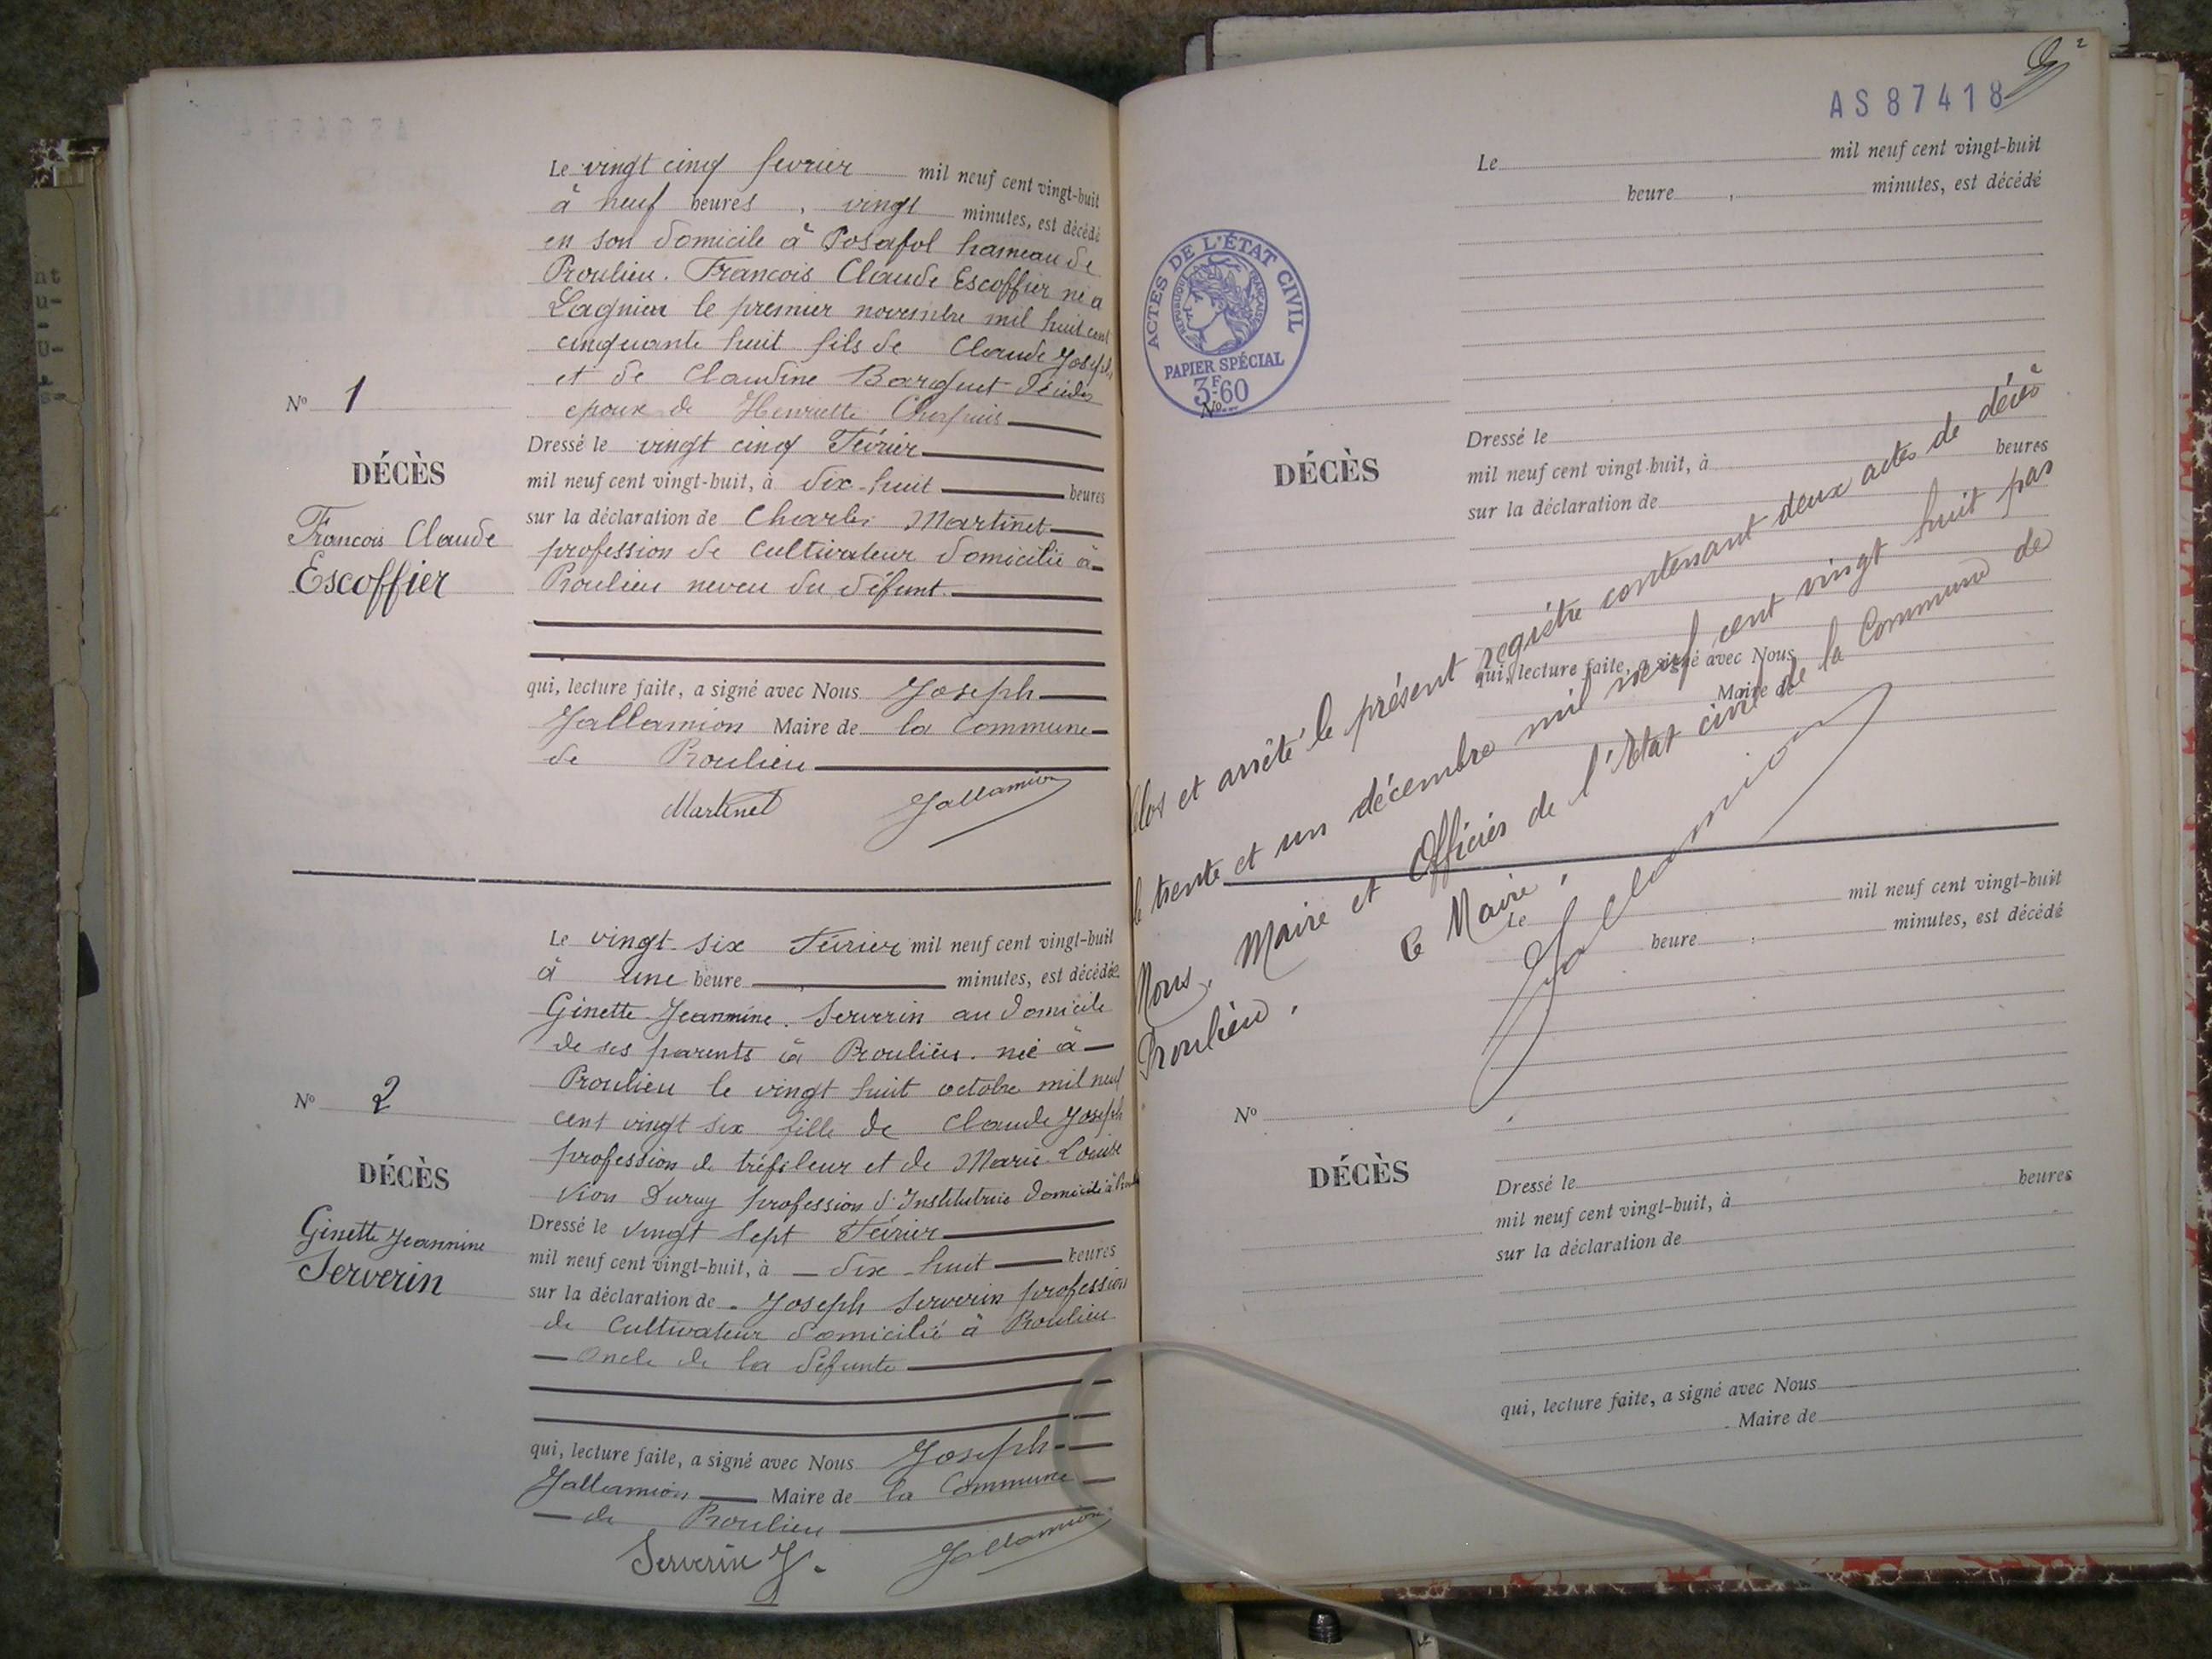 Le vingt cinq fevrier mil neuf cent vingt-huit
à neuf heures, vingt minutes, est décédé
en son domicile à Posafol hameau de
Proulieu. Francois Claude Escoffier né a
Lagnieu le premier novembre mil huit cent
cinquante huit fils de Claude Joseph
et de Claudine Barquet décédés
epoux de Henriette
Nº 1
DÉCÈS
Francois Claude
Escoffier
Dressé le vingt cinq Février
mil neuf cent vingt-huit, à dix-huit heures
sur la déclaration de Charles Martinet
profession de cultivateur domicilié à
Proulieu neveu du défunt.
qui, lecture faite, a signé avec Nous Joseph
Jallamion Maire de la Commune
de Proulieu
Martinet Jallamion
Le vingt-six Février mil neuf cent vingt-huit
à une heure , minutes, est décédée
Ginette Jeannine. Serverin au domicile
de ses parents à Proulieu. née à
Proulieu le vingt huit octobre mil neuf
cent vingt six fille de Claude Joseph
profession de tréfileur et de Marie Louise
Vion Duruy profession d'Institutrice domicilié à
Nº 2
DÉCÈS
Ginette Jeannine
Serverin
Dressé le vingt sept Février
mil neuf cent vingt-huit, à dix-huit heures
sur la déclaration de Joseph Serverin profession
de cultivateur domicilié à Proulieu
Oncle de la défunte
qui, lecture faite, a signé avec Nous Joseph
Jallamion Maire de la Commune
de Proulieu
Serverin J. Jallamion
2
AS87418
Le mil neuf cent vingt-huit
heure , minutes, est décédé
ACTES DE L'ÉTAT CIVIL
RÉPUBLIQUE FRANÇAISE
PAPIER SPÉCIAL
3F60
Nº
DÉCÈS
Dressé le
mil neuf cent vingt-huit, à heures
sur la déclaration de
qui, lecture faite, a signé avec Nous
Maire de
Clos et arrêté le présent registre contenant deux actes de décès
le trente et un décembre mil neuf cent vingt huit par
Nous, Maire et Officier de l'Etat civil de la Commune de
Proulieu.
Le Maire,
Jallamion
Le mil neuf cent vingt-huit
heure , minutes, est décédé
Nº
DÉCÈS
Dressé le
mil neuf cent vingt-huit, à heures
sur la déclaration de
qui, lecture faite, a signé avec Nous
Maire de